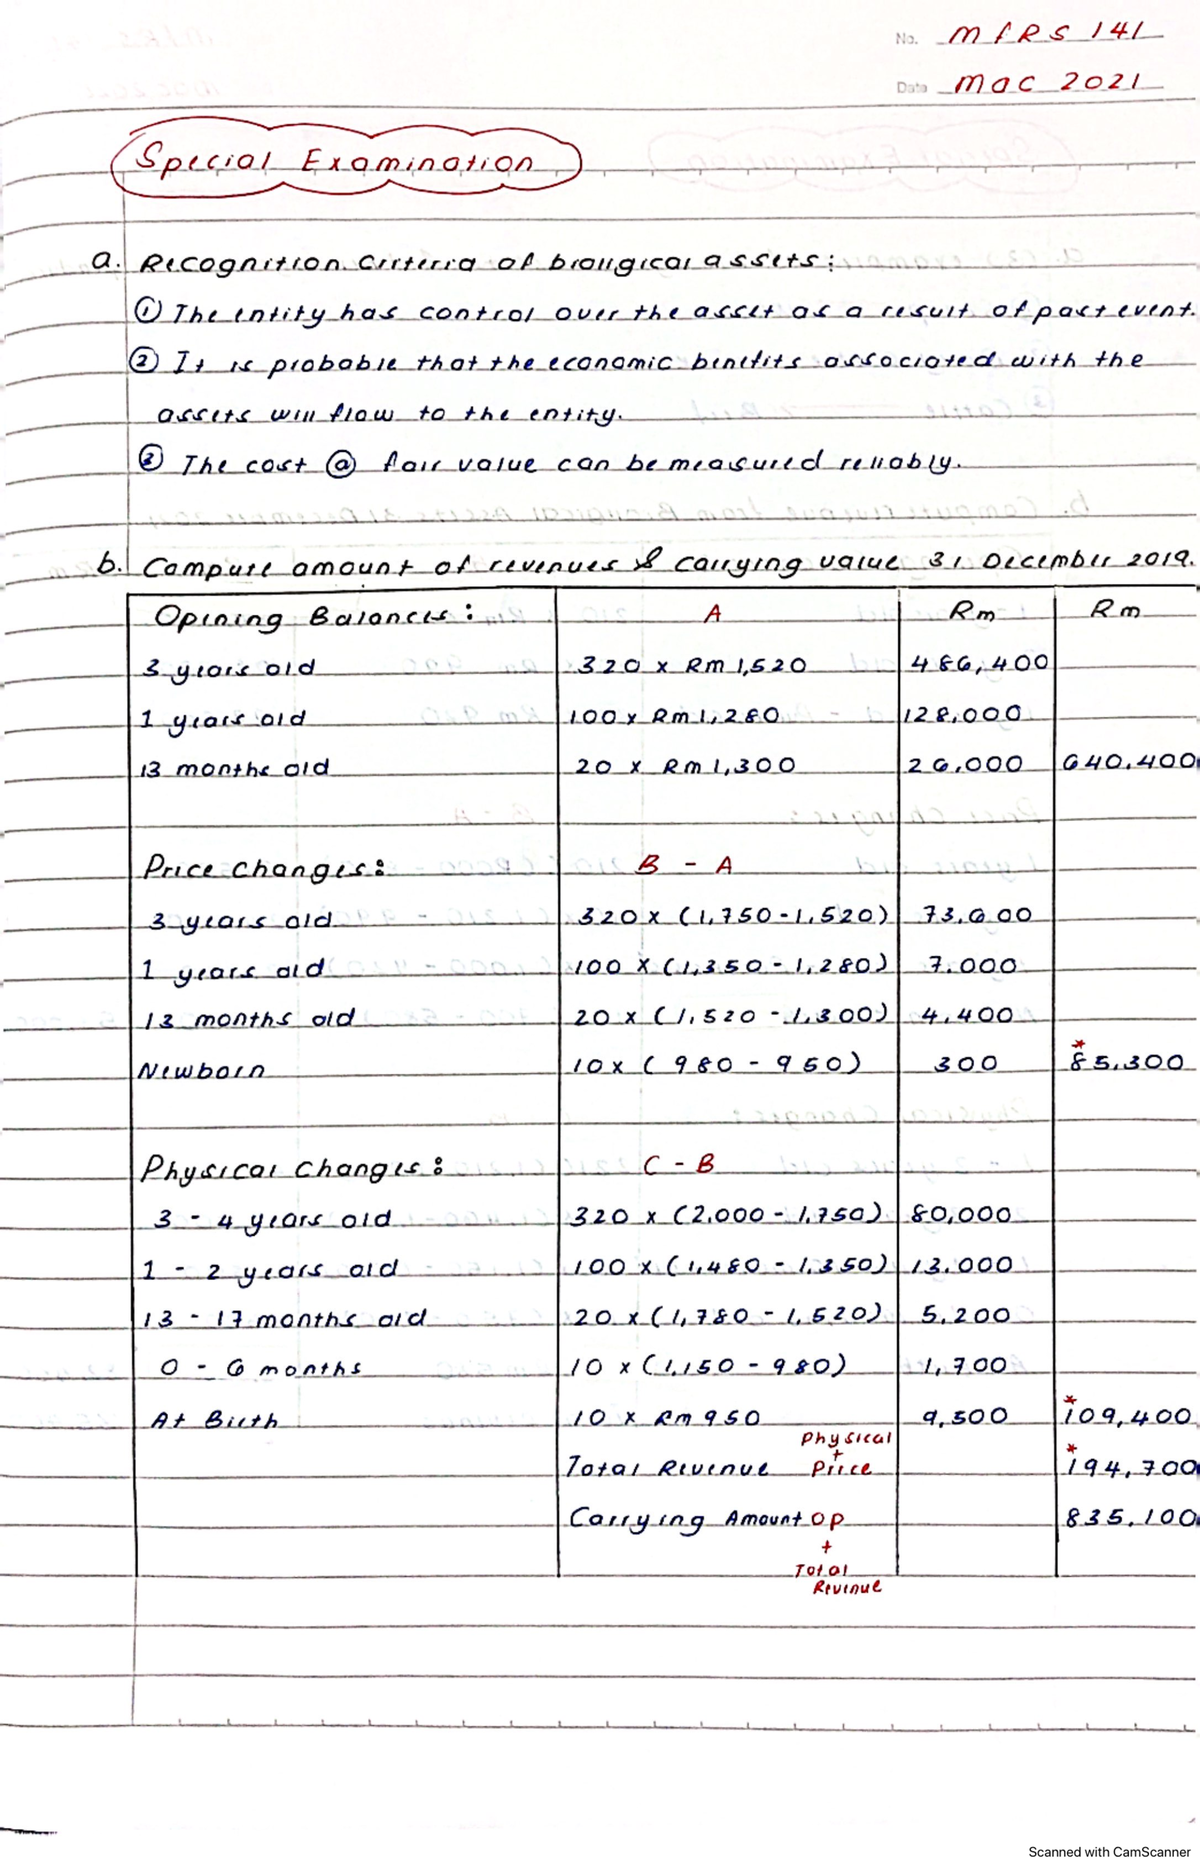 No. MFRS 141
Date Mac 2021
Special Examination
a. Recognition Criteria of biologicai assets:
① The entity has control over the asset as a result of past event.
② It is probable that the economic benefits associated with the
assets will flow to the entity.
③ The cost @ fair value can be measured reliably.
b. Compute amount of revenues & carrying value 31 December 2019.
Opining Balances: A Rm Rm
3 years old 320 x Rm 1,520 486,400
1 years old 100 x Rm 1,280 128,000
13 months old 20 x Rm 1,300 26,000 640,400
Price changes: B - A
3 years old 320 x (1,750 - 1,520) 73,600
1 years old 100 x (1,350 - 1,280) 7,000
13 months old 20 x (1,520 - 1,300) 4,400
Newborn 10 x (980 - 950) 300 *85,300
Physical Changes: C - B
3 - 4 years old 320 x (2,000 - 1,750) 80,000
1 - 2 years old 100 x (1,480 - 1,350) 13,000
13 - 17 months old 20 x (1,780 - 1,520) 5,200
0 - 6 months 10 x (1,150 - 980) 1,700
At Birth 10 x Rm 950 9,500 *109,400
Total Revenue Physical + Price *194,700
Carrying Amount OP + Total Revenue 835,100
Scanned with CamScanner